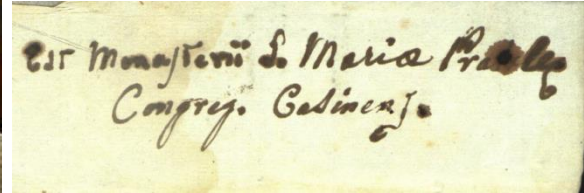 Est Monasterii S. Mariæ
Congreg. Casinens.